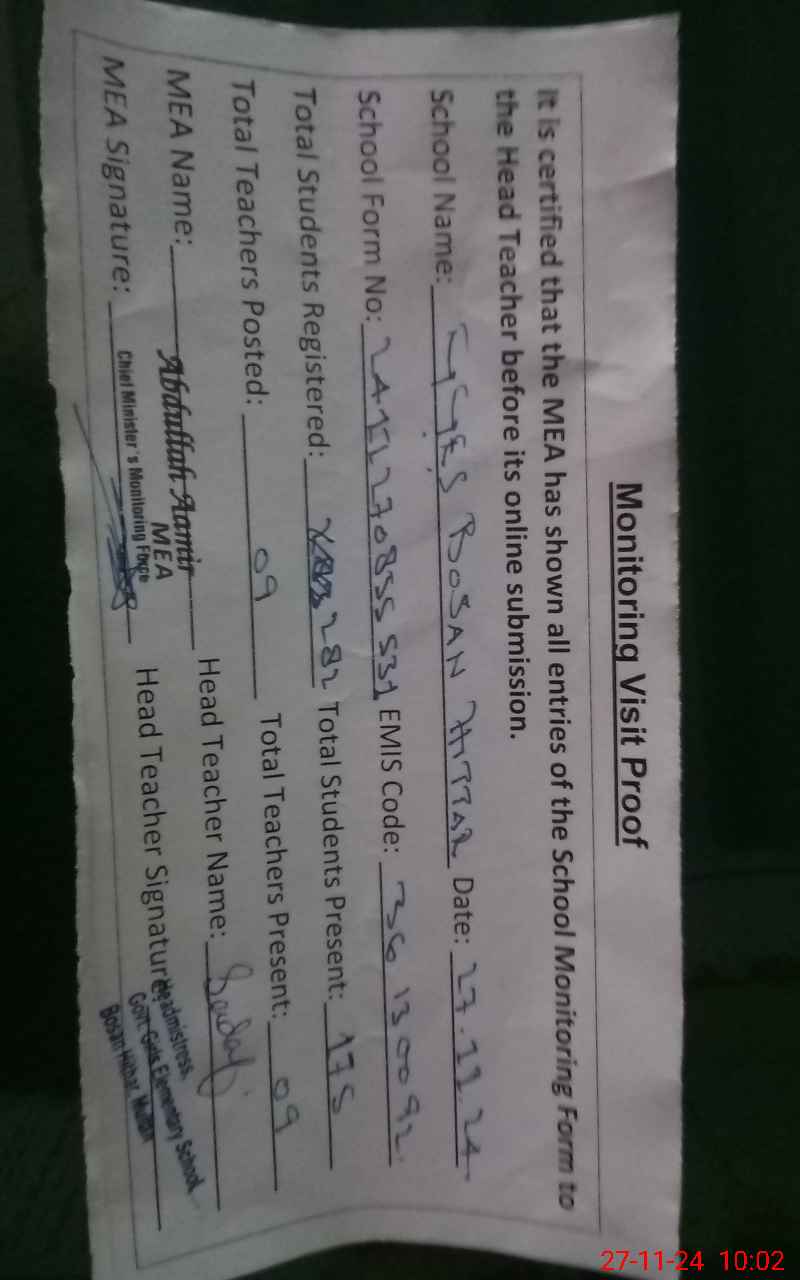 Monitoring Visit Proof
It is certified that the MEA has shown all entries of the School Monitoring Form to
the Head Teacher before its online submission.
School Name: BOSAN HITTAR Date: 27.11.24
School Form No: EMIS Code: 36130092
Total Students Registered: 282 Total Students Present: 175
Total Teachers Posted: 09 Total Teachers Present: 09
MEA Name: Abdullah Aamir Head Teacher Name:
MEA
MEA Signature: Chief Minister's Monitoring Force Head Teacher Signature:
Headmistress,
Govt. Girls Elementary School
Bosan Hittar Multan
27-11-24 10:02